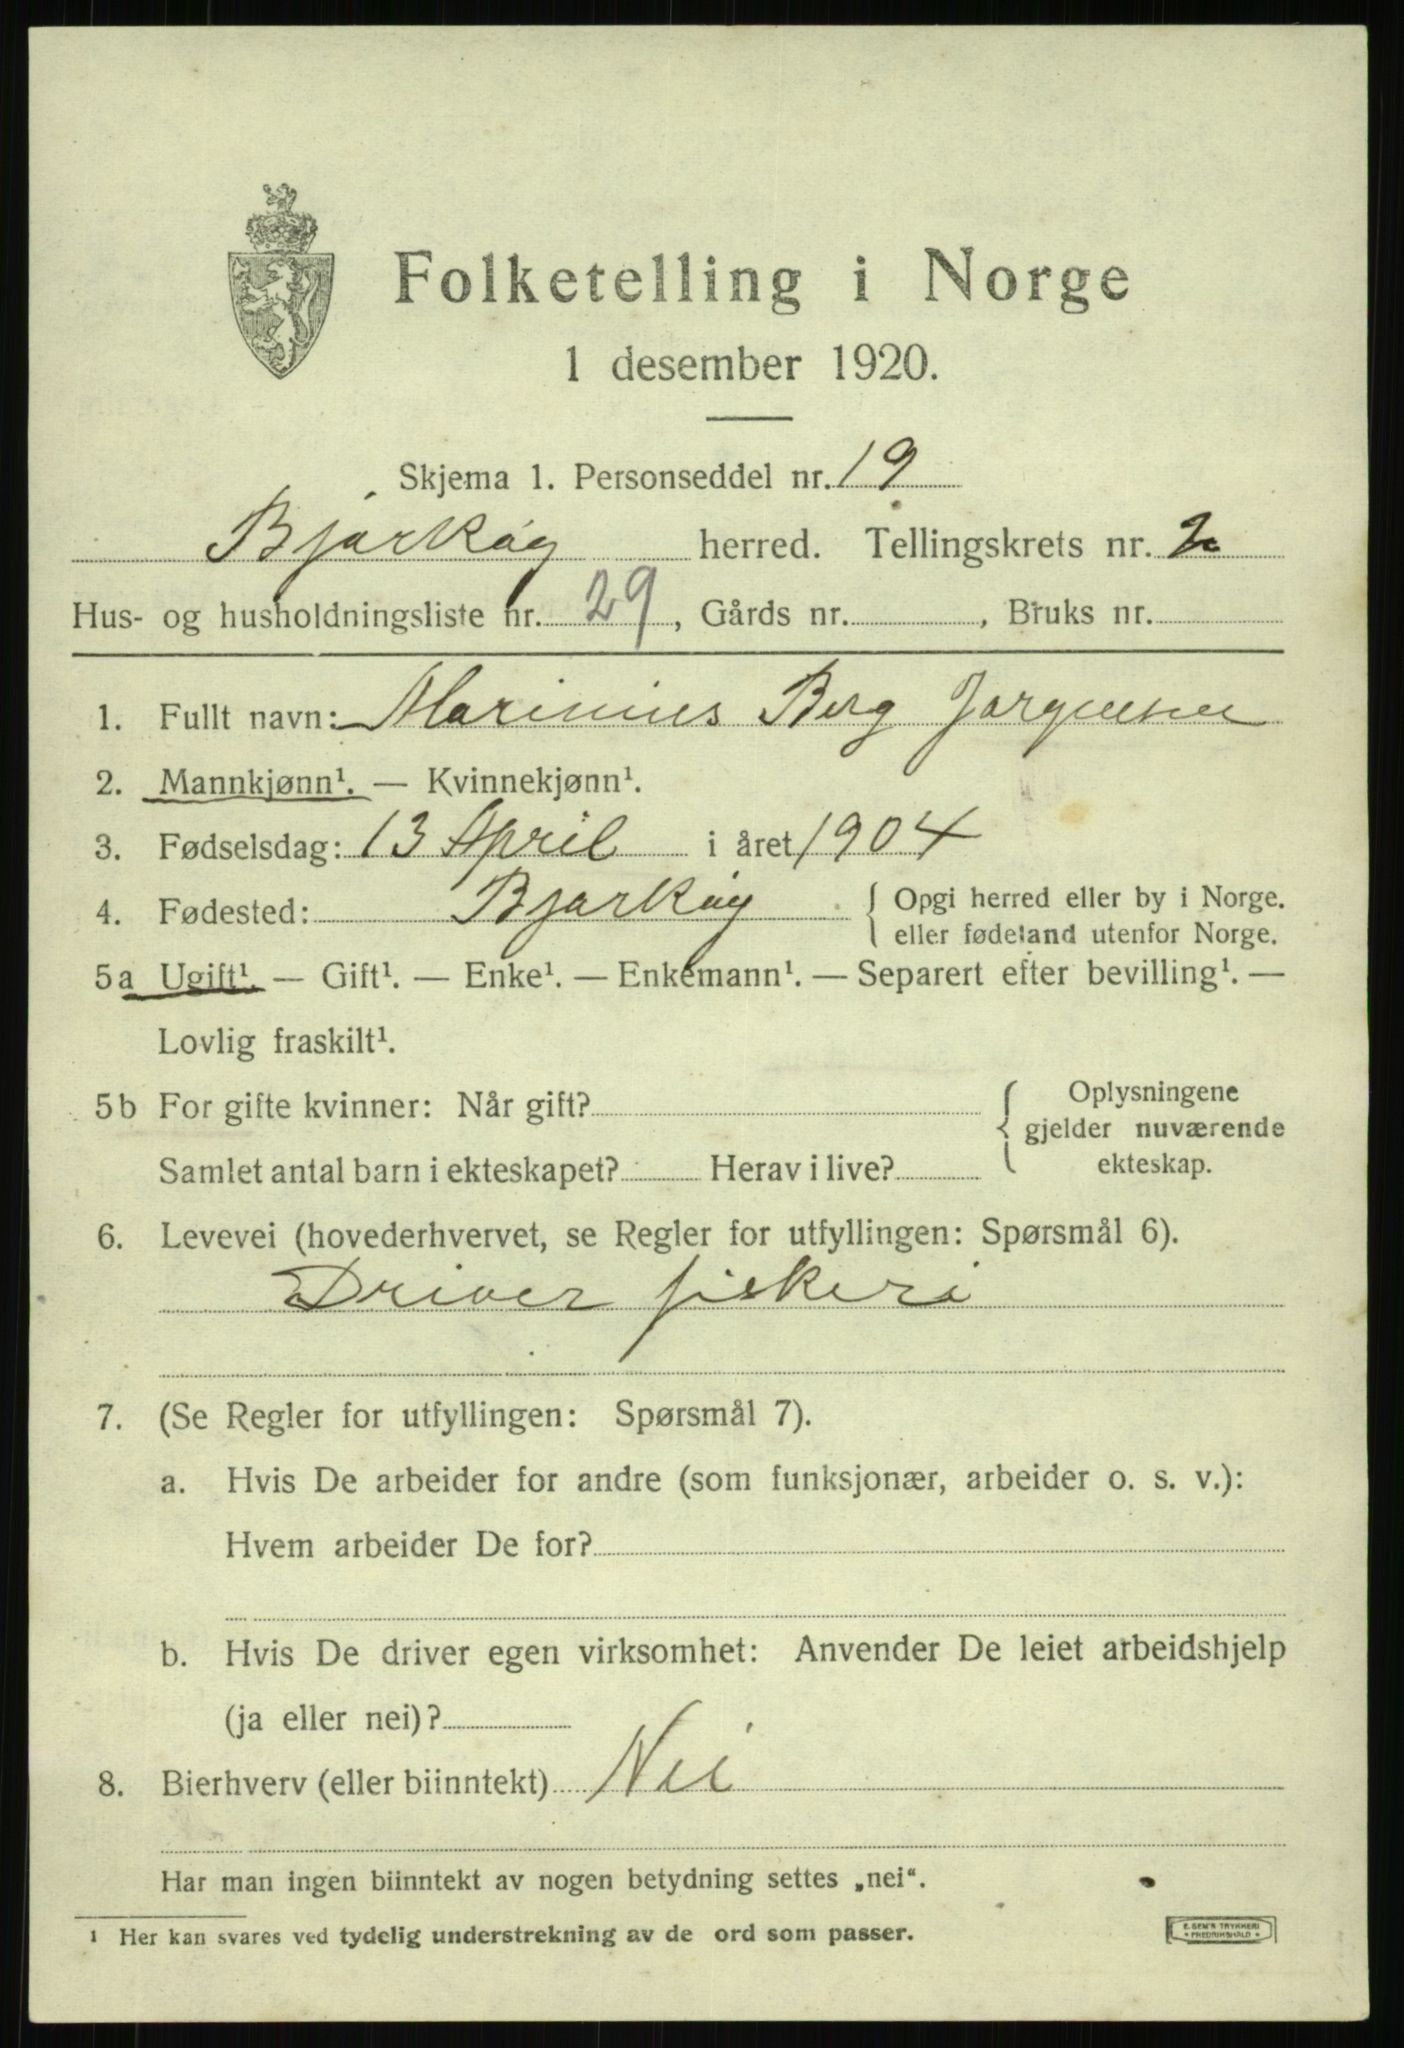 Folketelling i Norge
1 desember 1920.
Skjema 1. Personseddel nr. 19
Bjarkøy herred. Tellingskrets nr. 2
Hus- og husholdningsliste nr. 29, Gårds nr. , Bruks nr.
1. Fullt navn: Marinius Berg Jørgensen
2. Mannkjønn¹. — Kvinnekjønn¹.
3. Fødselsdag: 13 April i året 1904
4. Fødested: Bjarkøy { Opgi herred eller by i Norge.
eller fødeland utenfor Norge.
5a Ugift¹. — Gift¹. — Enke¹. — Enkemann¹. — Separert efter bevilling¹. —
Lovlig fraskilt¹.
5b For gifte kvinner: Når gift? { Oplysningene
gjelder nuværende
Samlet antal barn i ekteskapet? Herav i live? ekteskap.
6. Levevei (hovederhvervet, se Regler for utfyllingen: Spørsmål 6).
Driver fiskeri
7. (Se Regler for utfyllingen: Spørsmål 7).
a. Hvis De arbeider for andre (som funksjonær, arbeider o. s. v.):
Hvem arbeider De for?
b. Hvis De driver egen virksomhet: Anvender De leiet arbeidshjelp
(ja eller nei)?
8. Bierhverv (eller biinntekt) Nei
Har man ingen biinntekt av nogen betydning settes „nei“.
¹ Her kan svares ved tydelig understrekning av de ord som passer.
E. SEM'S TRYKKERI
• FREDRIKSHALD •